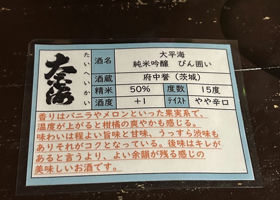 太平海
たいへいかい
酒名 太平海 純米吟醸 びん囲い
酒蔵 府中誉（茨城）
精米 50% 度数 15度
酒度 +1 テイスト やや辛口
香りはバニラやメロンといった果実系で、
温度が上がると柑橘の爽やかも感じる。
味わいは程よい旨味と甘味、うっすら渋味も
ありそれがコクとなっている。後味はキレが
あると言うより、よい余韻が残る感じの
美味しいお酒です。